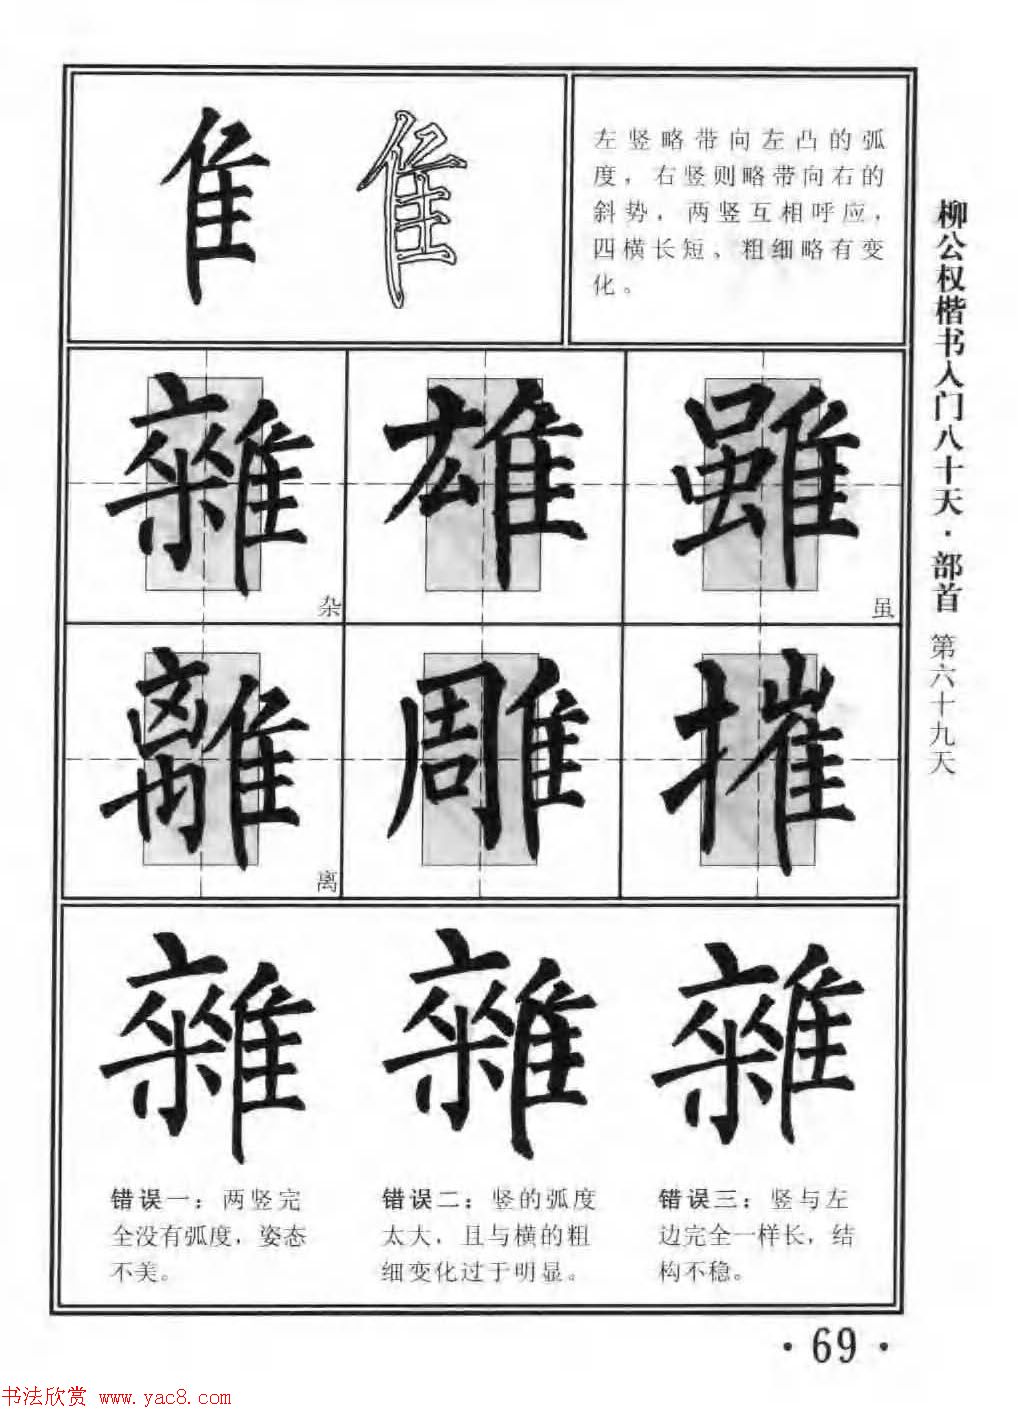 隹 隹
左竖略带向左凸的弧
度，右竖则略带向右的
斜势，两竖互相呼应，
四横长短、粗细略有变
化。
雜 雄 雖
杂 虽
離 雕 摧
离
雜 雜 雜
错误一：两竖完
全没有弧度，姿态
不美。
错误二：竖的弧度
太大，且与横的粗
细变化过于明显。
错误三：竖与左
边完全一样长，结
构不稳。
柳公权楷书入门八十天·部首 第六十九天
·69·
书法欣赏 www.yac8.com